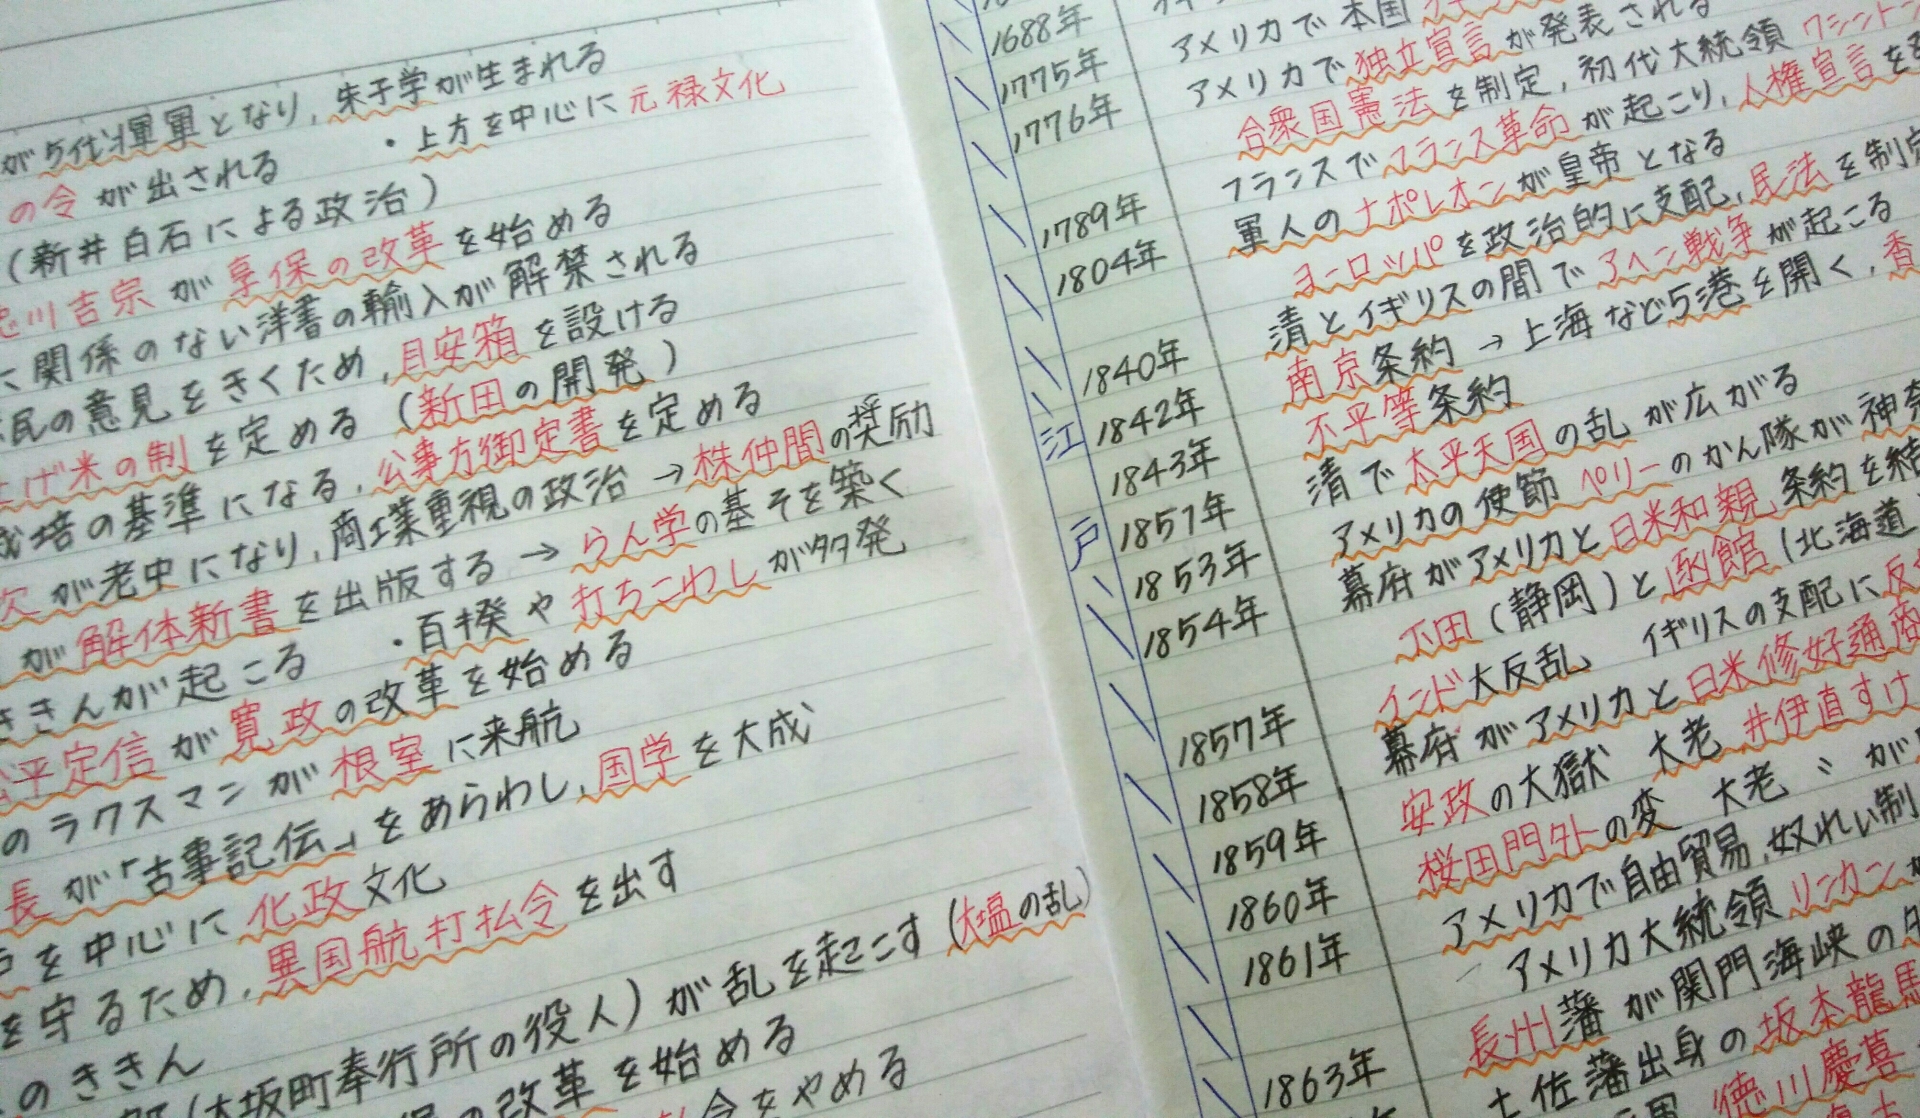 が5代将軍となり,朱子学が生まれる
の令が出される ・上方を中心に元禄文化
(新井白石による政治)
川吉宗が享保の改革を始める
に関係のない洋書の輸入が解禁される
民の意見をきくため,目安箱を設ける
げ米の制を定める(新田の開発)
培の基準になる,公事方御定書を定める
が老中になり,商工業重視の政治→株仲間の奨励
が解体新書を出版する→らん学の基そを築く
ききんが起こる ・百揆や打ちこわしが多発
平定信が寛政の改革を始める
のラクスマンが根室に来航
長が「古事記伝」をあらわし,国学を大成
を中心に化政文化
を守るため,異国船打払令を出す
のききん
(大坂町奉行所の役人)が乱を起こす(大塩の乱)
の改革を始める
令をやめる
1688年
1775年 アメリカで本国
1776年 アメリカで独立宣言が発表される
合衆国憲法を制定,初代大統領ワシントン
1789年 フランスでフランス革命が起こり,人権宣言を
1804年 軍人のナポレオンが皇帝となる
ヨーロッパを政治的に支配,民法を制定
1840年 清とイギリスの間でアヘン戦争が起こる
1842年 南京条約→上海など5港を開く,香
1843年 不平等条約
1851年 清で太平天国の乱が広がる
1853年 アメリカの使節ペリーのかん隊が神奈
1854年 幕府がアメリカと日米和親条約を結
下田(静岡)と函館(北海道
1857年 インド大反乱 イギリスの支配に反
1858年 幕府がアメリカと日米修好通商
1859年 安政の大獄 大老井伊直すけ
1860年 桜田門外の変 大老〃が
1861年 アメリカで自由貿易,奴れい制
アメリカ大統領リンカンが
1863年 長州藩が関門海峡の外
土佐藩出身の坂本龍馬
徳川慶喜
江
戸